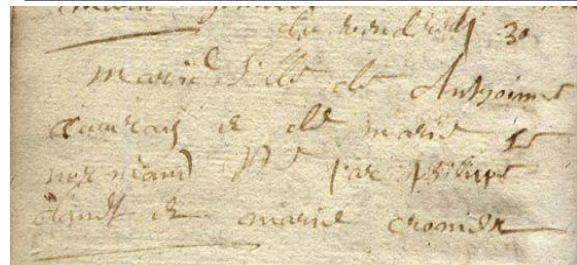 du vendredy 30
marie fille de Anthoine
et de marie Le
normand par philippe
et marie cronier